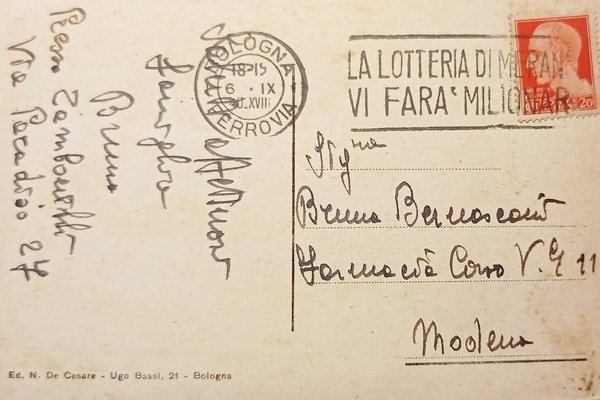 affettuosi
Bruno
Via Paradiso 27
BOLOGNA
18-19
6 . IX
XVIII
FERROVIA
LA LOTTERIA DI MERAN
VI FARA' MILIONAR
20
Sig.na
Bruna Bernasconi
Farmacia Corso V. E 11
Modena
Ed. N. De Cesare - Ugo Bassi, 21 - Bologna